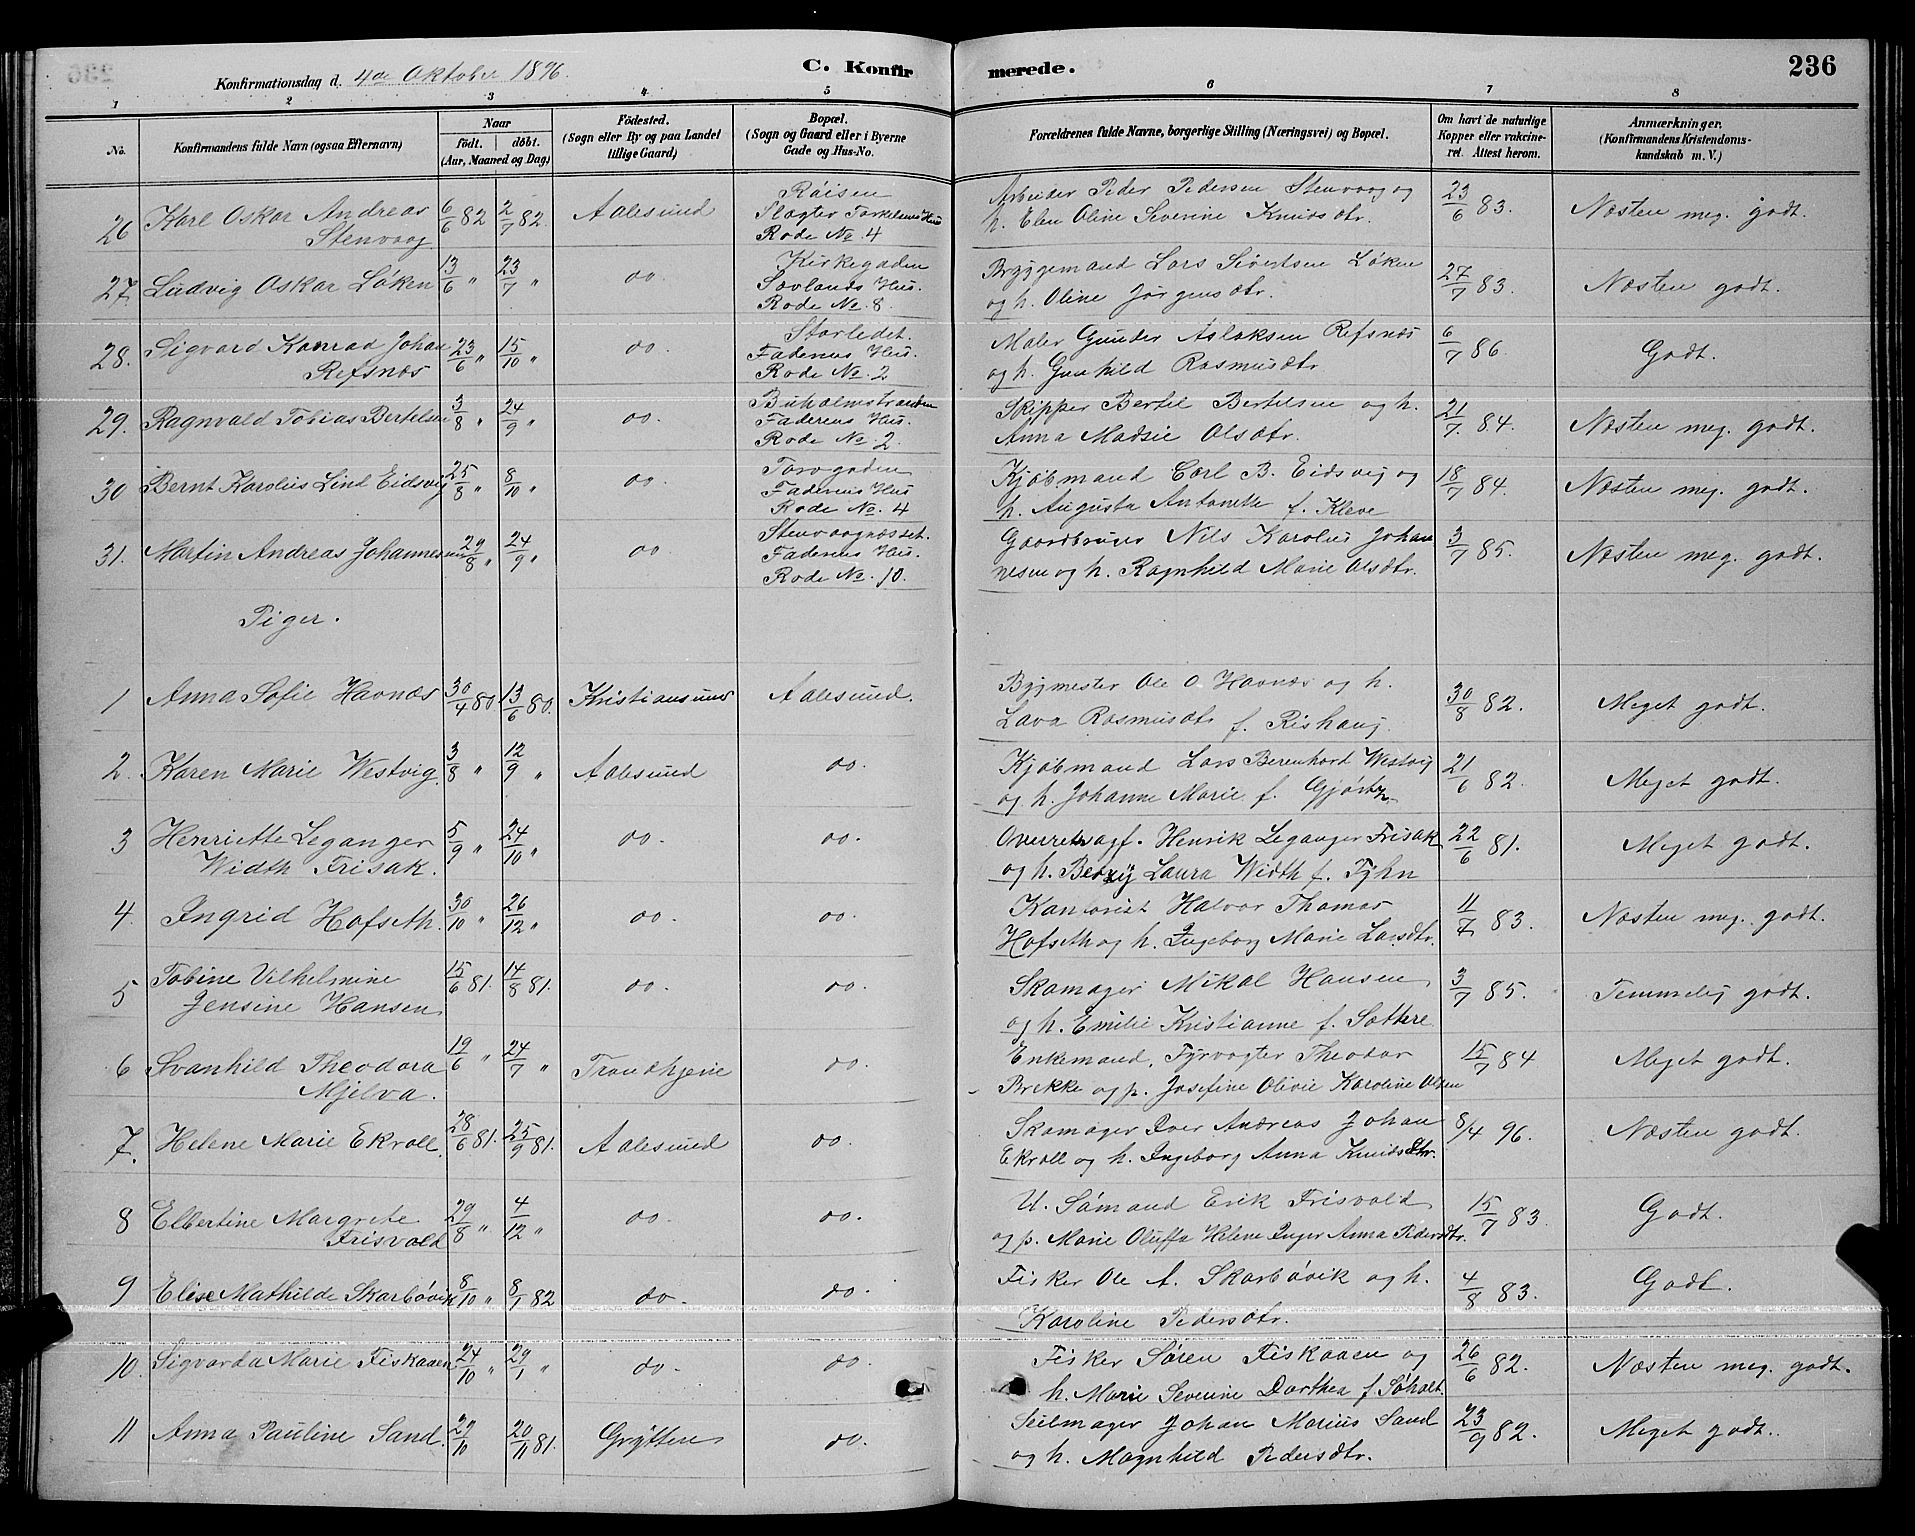 Konfirmationsdag d. 4de Oktober 1896.
C. Konfirmerede.
236
1 2 3 4 5 6 7 8
No.
Konfirmandens fulde Navn (ogsaa Efternavn)
Naar
födt. döbt.
(Aar, Maaned og Dag)
Födested.
(Sogn eller By og paa Landet
tillige Gaard)
Bopæl.
(Sogn og Gaard eller i Byerne
Gade og Hus-No.
Forældrenes fulde Navne, borgerlige Stilling (Næringsvei) og Bopæl.
Om havt de naturlige
Kopper eller vakcine-
ret. Attest herom.
Anmærkninger.
(Konfirmandens Kristendoms-
kundskab m. V.)
26 Karl Oskar Andreas Stenvaag 6/6 82 2/7 82. Aalesund Röisen Slagter Torkelsens Hus Rode No. 4 Arbeider Peder Pedersen Stenvaag og h. Elen Oline Severine Knudsdtr. 23/6 83. Næsten meg. godt.
27 Ludvig Oskar Löken 13/6 " 23/7 " do. Kirkegaden Sovlands Hus. Rode No. 8. Bryggemand Lars Sivertsen Löken og h. Oline Jörgensdtr. 27/7 83. Næsten godt.
28. Sigvard Konrad Johan Refsnæs 23/6 " 15/10 " do. Storledet. Faderens Hus. Rode No. 2 Maler Gunder Aslaksen Refsnæs og h. Gunhild Rasmusdtr 6/7 86. Godt.
29. Ragnvald Tobias Bertelsen 3/8 " 24/9 " do. Buholmstranden Faderens Hus. Rode No. 2. Skipper Bertel Bertelsen og h. Anna Madsie Olsdtr. 21/7. 84. Næsten meg. godt.
30 Bernt Karolius Lind Eidsvig 25/8 " 8/10 " do. Torvgaden Faderens Hus Rode No. 4 Kjöbmand Carl B. Eidsvig og h. Augusta Antonette f. Kleve 18/7 84. Næsten meg. godt.
31. Martin Andreas Johannesen 29/8 " 24/9 " do. Stenvaagnæsset. Faderens Hus. Rode No. 10. Gaardbruger Nils Karolius Johannesen og h. Ragnhild Marie Olsdtr. 3/7 85. Næsten meg. godt.
Piger.
1 Anna Sofie Havnæs 30/4 80 13/6 80. Kristiansund Aalesund. Bygmester Ole O. Havnæs og h. Lava Rasmusdtr f. Rishaug. 30/8 82. Meget godt.
2. Karen Marie Westvig. 3/8 " 12/9 " Aalesund do. Kjöbmand Lars Berenhard Westvig og h. Johanne Marie f. 21/6 82. Meget godt.
3 Henriette Leganger Width Frisak. 5/9 " 24/10 " do. do. Overretssagf. Henrik Leganger Frisak og h. Betzy Laura Width f. Tyhn 22/6 81. Meget godt.
4. Ingrid Hofseth. 30/10 " 26/12 " do. do. Kontorist Halvor Thomas Hofseth og h. Ingeborg Marie Larsdtr. 11/7 83. Næsten meg. godt.
5 Tobine Vilhelmine Jensine Hansen 15/6 81. 14/8 81. do. do. Skomager Mikal Hansen og h. Emilie Kristianne f. Sottere 3/7 85. Temmelig godt.
6 Svanhild Theodora Mjelva. 19/6 " 24/7 " Trondhjem do. Enkemand, Fyrvogter Theodor Brekke og p. Josefine Olivie Karoline Olsen 15/7 84 Meget godt.
7. Helene Marie Ekroll. 28/6 81. 25/9 81. Aalesund do. Skomager Iver Andreas Johan Ekroll og h. Ingeborg Anna Knudsdtr. 8/4 96. Næsten godt.
8 Elbertine Margrete Frisvold 29/8 " 4/12 " do. do. U. Sömand Erik Frisvold og p. Marie Oluffa Helene Inger Anna Pedersdtr. 15/7 83. Godt.
9 Elise Mathilde Skarbövik 8/10 " 8/1 82 do. do. Fisker Ole A. Skarbövik og h. Karoline Pedersdtr. 4/8 83. Godt.
10. Sigvarda Marie Fiskaaen 24/10 " 29/1 " do. do. Fisker Sören Fiskaaen og h. Marie Severine Dorthea f. Söholt. 26/6 82. Næsten meg. godt.
11 Anna Pauline Sand. 29/10 20/11 81. Gryttere do. Seilmager Johan Marius Sand og h. Magnhild Pedersdtr. 23/9 82. Meget godt.